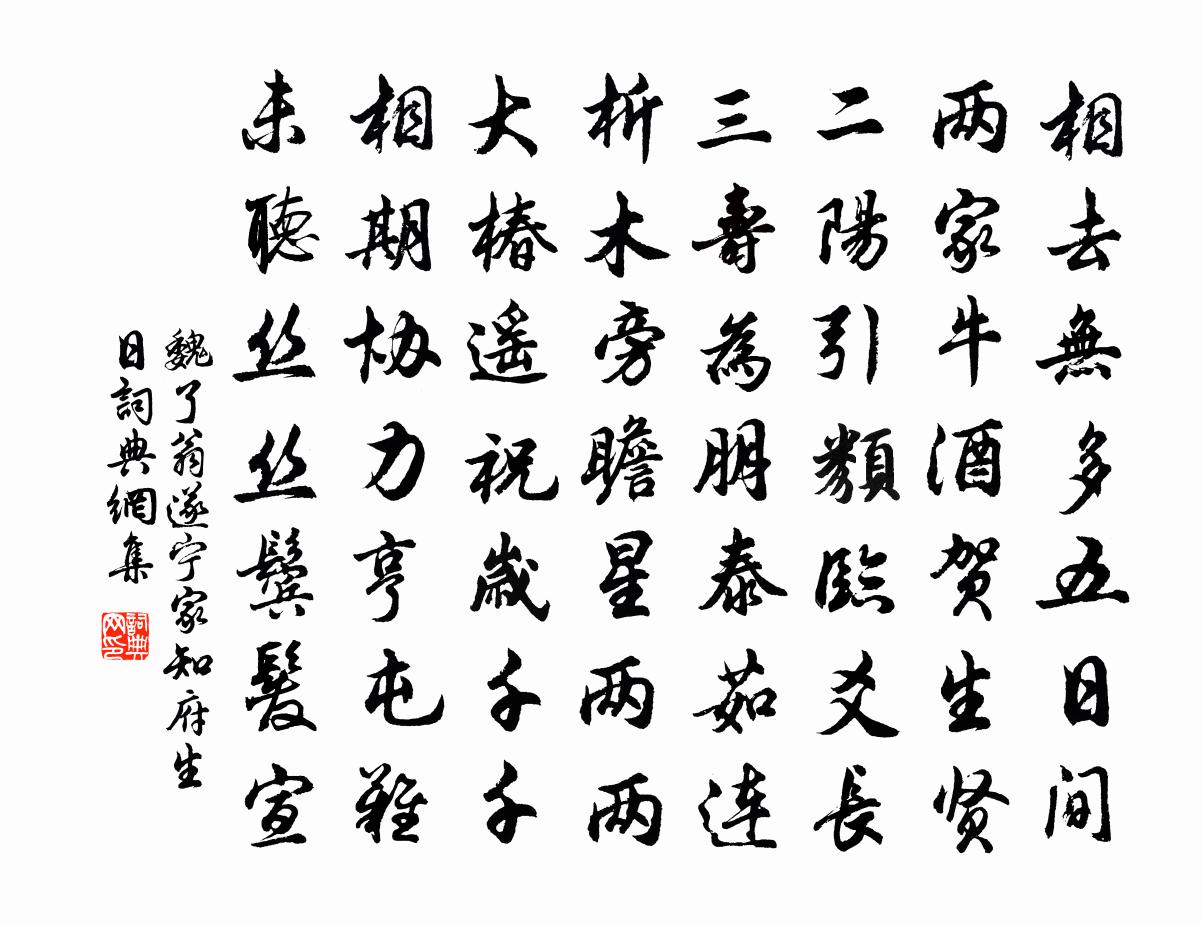 相去無多五日间
两家牛酒贺生贤
二陽引類臨爻長
三壽為朋泰茹连
析木旁瞻星两两
大椿遥祝歲千千
相期协力亨屯難
未聽丝丝鬓髮宣
魏了翁遂宁家知府生
日詞典網集
詞典网印